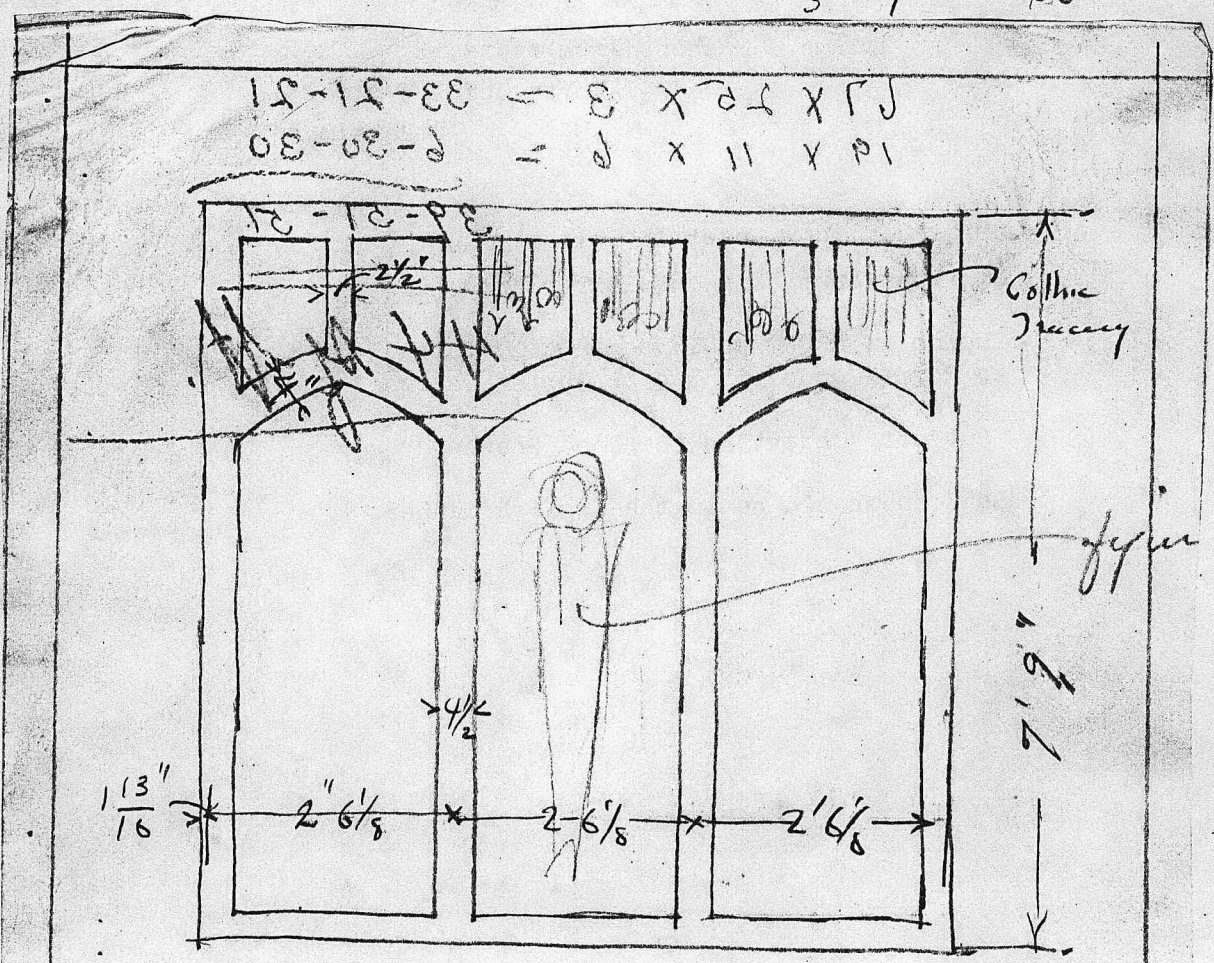 67 x 25 x 3 = 33-21-21
19 x 11 x 6 = 6-30-30
39-51-51
2½"
Gothic
Tracery
7' 9"
4½
1 13/16"
2" 6⅛
2-6⅛
2' 6⅛